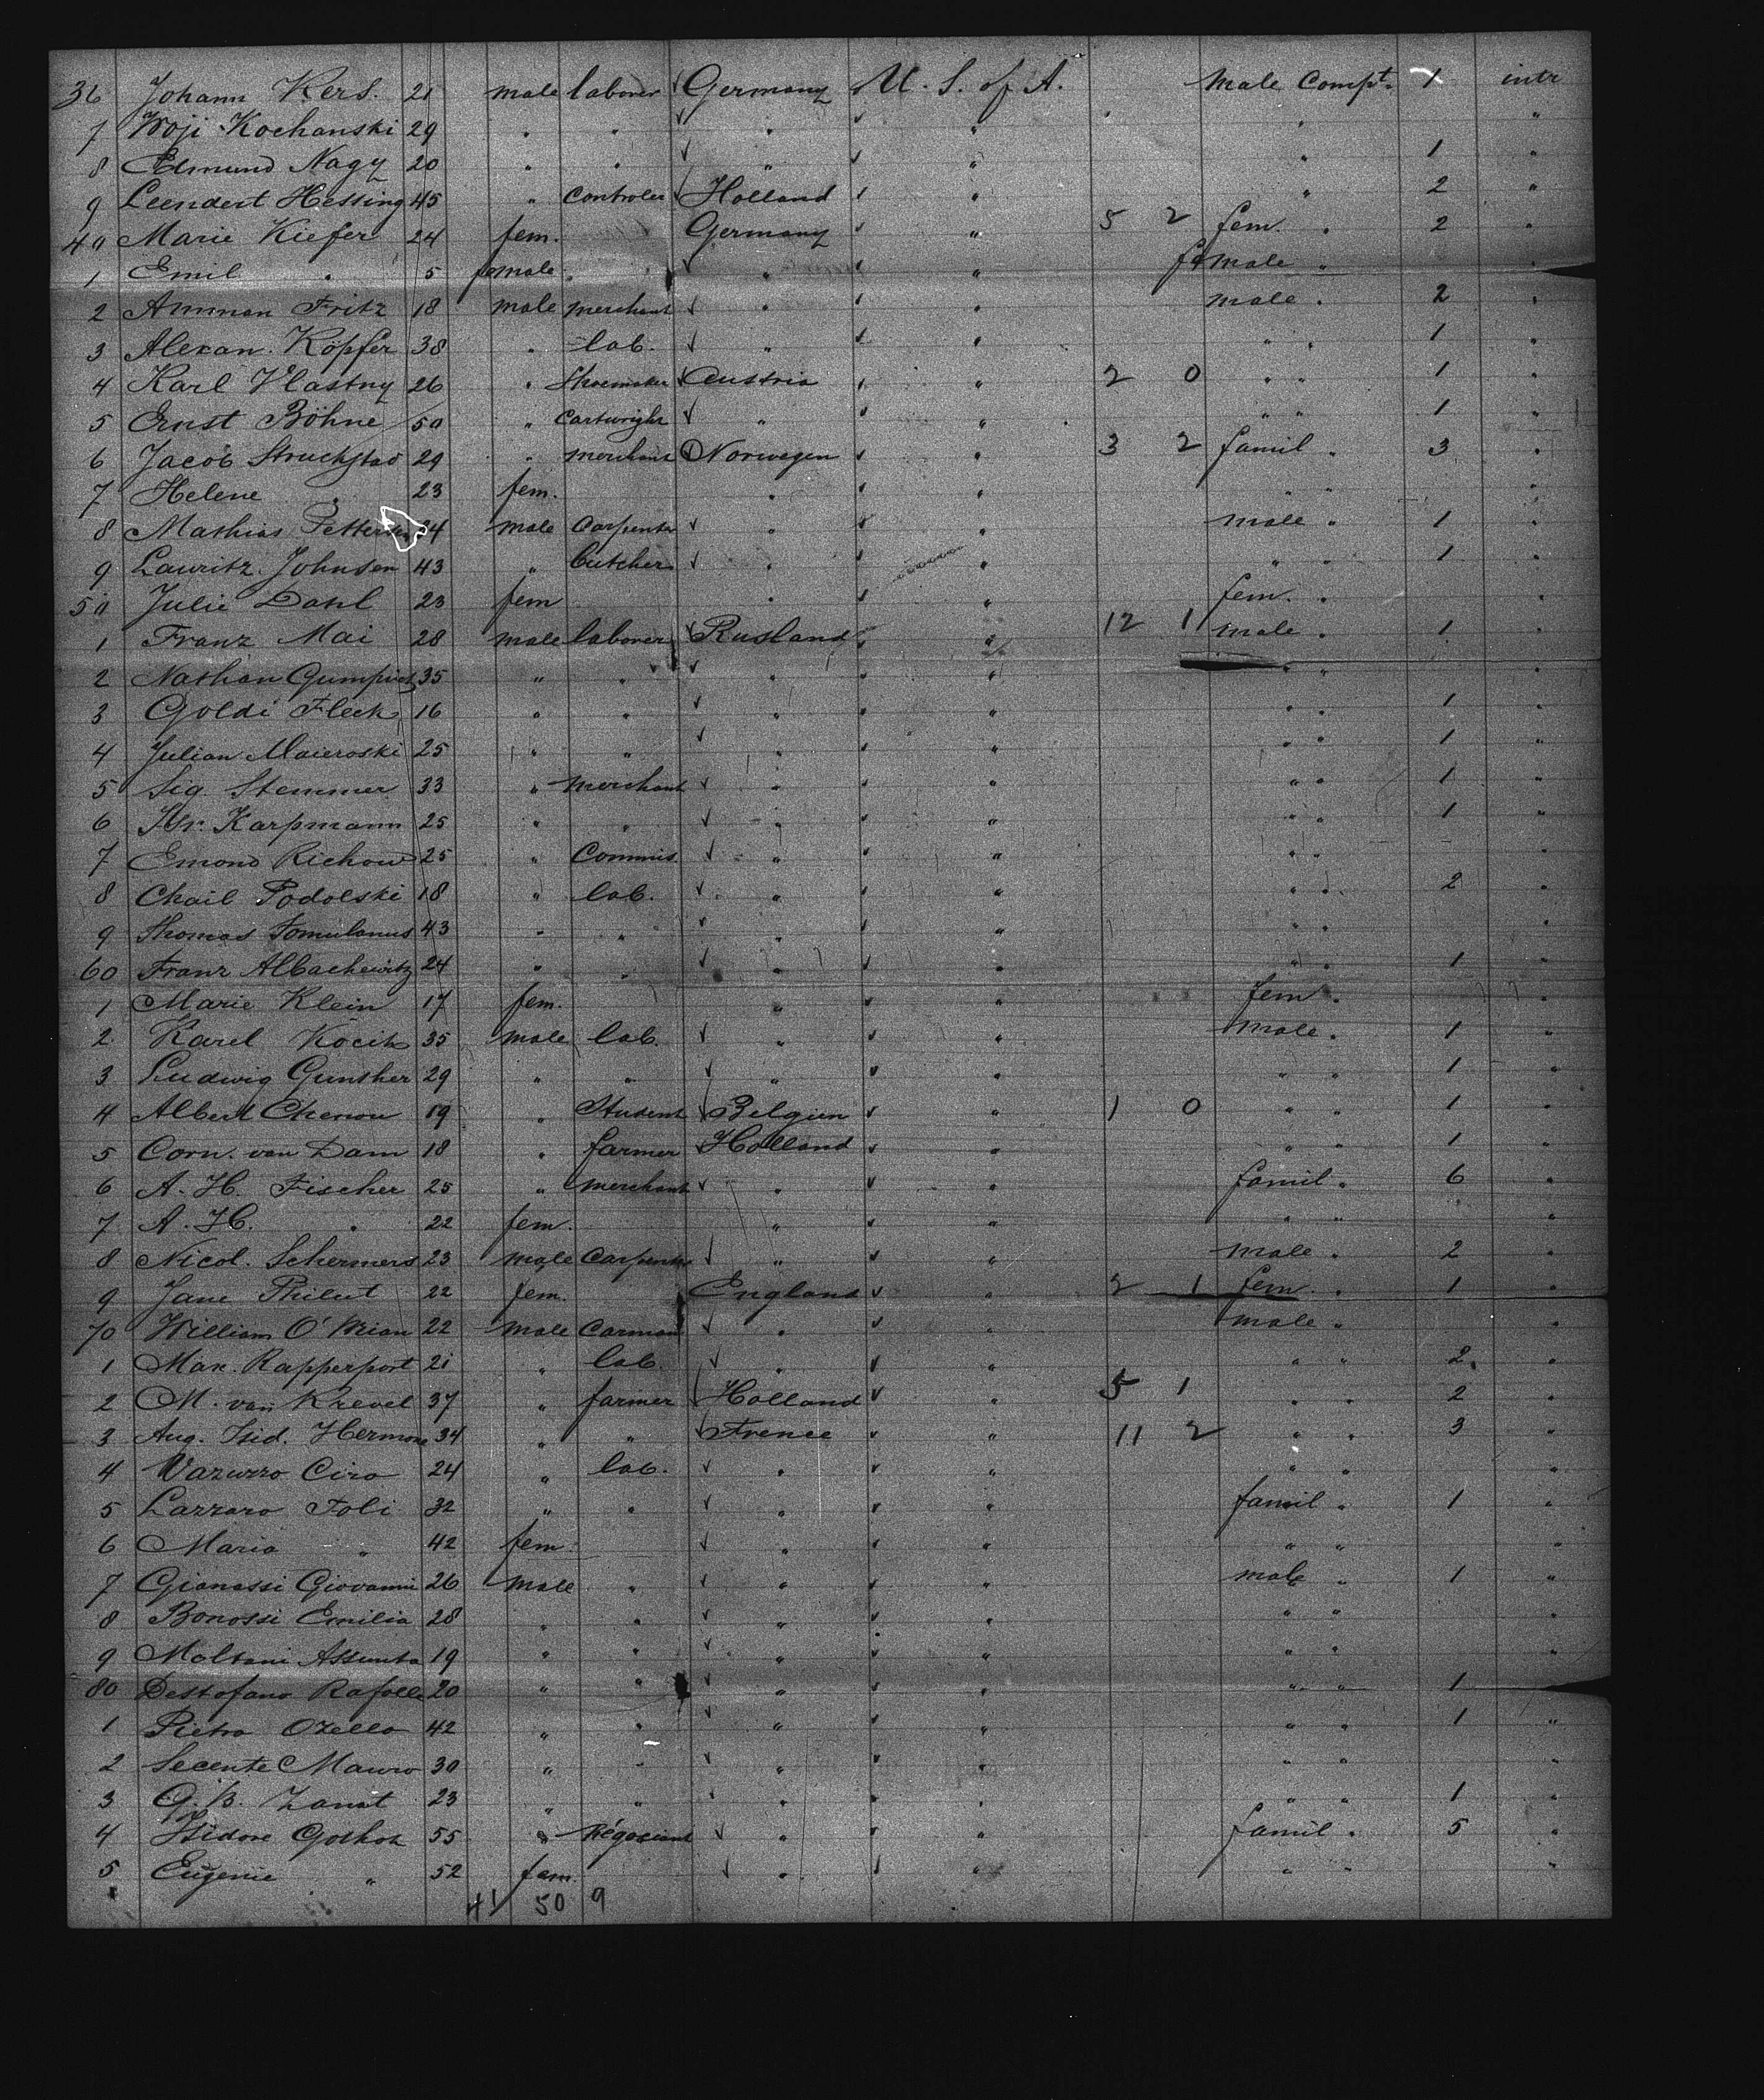 36 Johann Kers. 21 male laborer Germany U. S. of A. Male Compt. 1 intr
7 Woji Kochanski 29 " " " " " "
8 Edmund Nagy 20 " " " " " 1 "
9 Leendert Hessing 45 " Controler Holland " " 2 "
40 Marie Kiefer 24 fem. Germany " 5 2 fem. " 2 "
1 Emil " 5 female " " " female " "
2 Amman Fritz 18 male merchant " " male " 2 "
3 Alexan. Köpfer 38 " lab. " " " " 1 "
4 Karl Vlastny 26 " Shoemaker Austria " 2 0 " " 1 "
5 Ernst Böhne 50 " Cartwright " " " " 1 "
6 Jacob 29 " merchant Norwegen " 3 2 famil " 3 "
7 Helene " 23 fem. " " " " "
8 Mathias 24 male Carpenter " " male " 1 "
9 Lauritz Johnsen 43 " butcher " " " " 1 "
50 Julie Dahl 23 fem " " fem. " "
1 Franz Mai 28 male laborer Rusland " 12 1 male " 1 "
2 Nathan 35 " " " " " " "
3 Goldi Fleck 16 " " " " " " 1 "
4 Julian Maieroski 25 " " " " " " 1 "
5 Sig. Stemmer 33 " merchant " " " " 1 "
6 Karpmann 25 " " " " " " 1 "
7 Emond Richow 25 " Commis. " " " " "
8 Chail Podolski 18 " lab. " " " " 2 "
9 Thomas 43 " " " " " " "
60 Franz Albachewitz 24 " " " " " " 1 "
1 Marie Klein 17 fem. " " fem " "
2 Karel Kocik 35 male lab. " " male " 1 "
3 Ludwig Gunther 29 " " " " " " 1 "
4 Albert Chenou 19 " Student Belgien " 1 0 " " 1 "
5 Corn. van Dam 18 " farmer Holland " " " 1 "
6 A. H. Fischer 25 " merchant " " famil " 6 "
7 A. H. " 22 fem. " " " " "
8 Nicol. Schermers 23 male Carpenter " " male " 2 "
9 Jane 22 fem. England " 2 1 fem " 1 "
70 William O'Brian 22 male Carman " " male " "
1 Max. Rapperport 21 " lab. " " " " 2 "
2 M. van Krevel 37 " farmer Holland " 5 1 " " 2 "
3 Aug. Isid. Hermone 34 " " Frence " 11 2 " " 3 "
4 Vazurro Ciro 24 " lab. " " " " "
5 Lazzaro Foli 32 " " " " famil " 1 "
6 Maria " 42 fem. " " " " "
7 Gianassi Giovanni 26 male " " " male " 1 "
8 Bonossi Emilia 28 " " " " " " "
9 Moltani Assunta 19 " " " " " " "
80 Destofano Rafoelle 20 " " " " " " 1 "
1 Pietro Ozello 42 " " " " " " 1 "
2 Secente Mauro 30 " " " " " " "
3 G. B. Zanat 23 " " " " " " 1 "
4 Isidore 55 " Négociant " " famil " 5 "
5 Eugenie " 52 fem. " " " " "
41 50 9